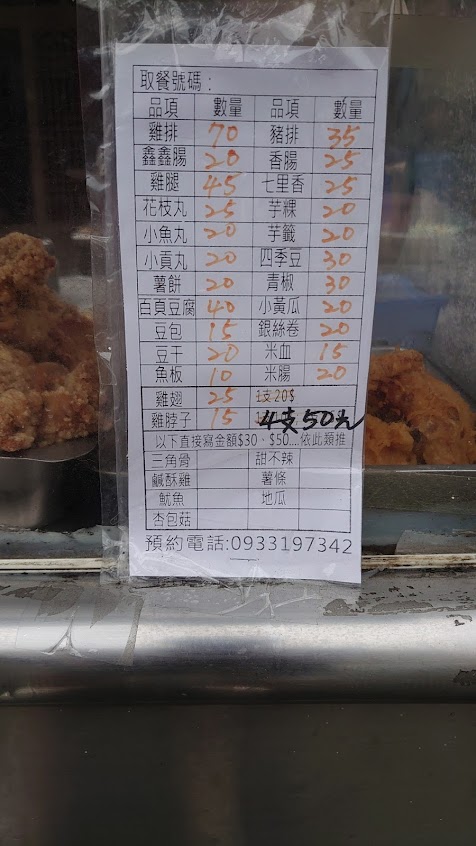 取餐號碼：
品項 數量 品項 數量
雞排 70 豬排 35
鑫鑫腸 20 香腸 25
雞腿 45 七里香 25
花枝丸 25 芋粿 20
小魚丸 20 芋籤 20
小貢丸 20 四季豆 30
薯餅 20 青椒 30
百頁豆腐 40 小黃瓜 20
豆包 15 銀絲卷 20
豆干 20 米血 15
魚板 10 米腸 20
雞翅 25 1支20$
雞脖子 15 4支50元
以下直接寫金額$30、$50...依此類推
三角骨 甜不辣
鹹酥雞 薯條
魷魚 地瓜
杏包菇
預約電話:0933197342